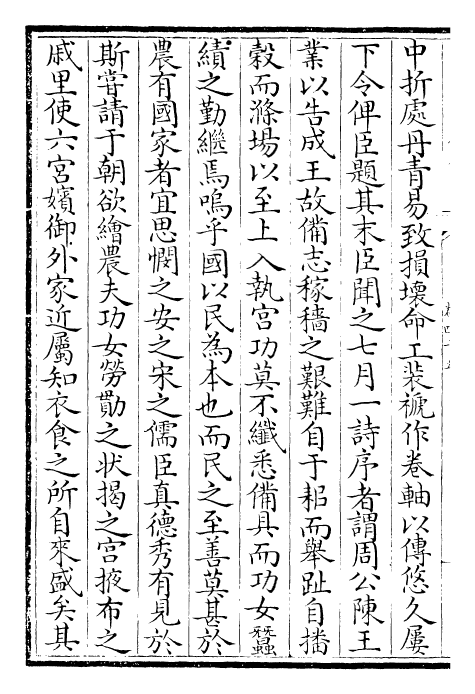 中折處丹青易致損壞命工裝褫作卷軸以傳悠久屢
下令俾臣題其末臣聞之七月一詩序者謂周公陳王
業以告成王故備志稼穡之艱難自于耜而舉趾自播
穀而滌場以至上入執宫功莫不纖悉備具而功女蠶
績之勤繼焉嗚乎國以民為本也而民之至善莫甚於
農有國家者宜思憫之安之宋之儒臣真德秀有見於
斯嘗請于朝欲繪農夫功女勞勩之状揭之宫掖布之
戚里使六宫嬪御外家近屬知衣食之所自來盛矣其